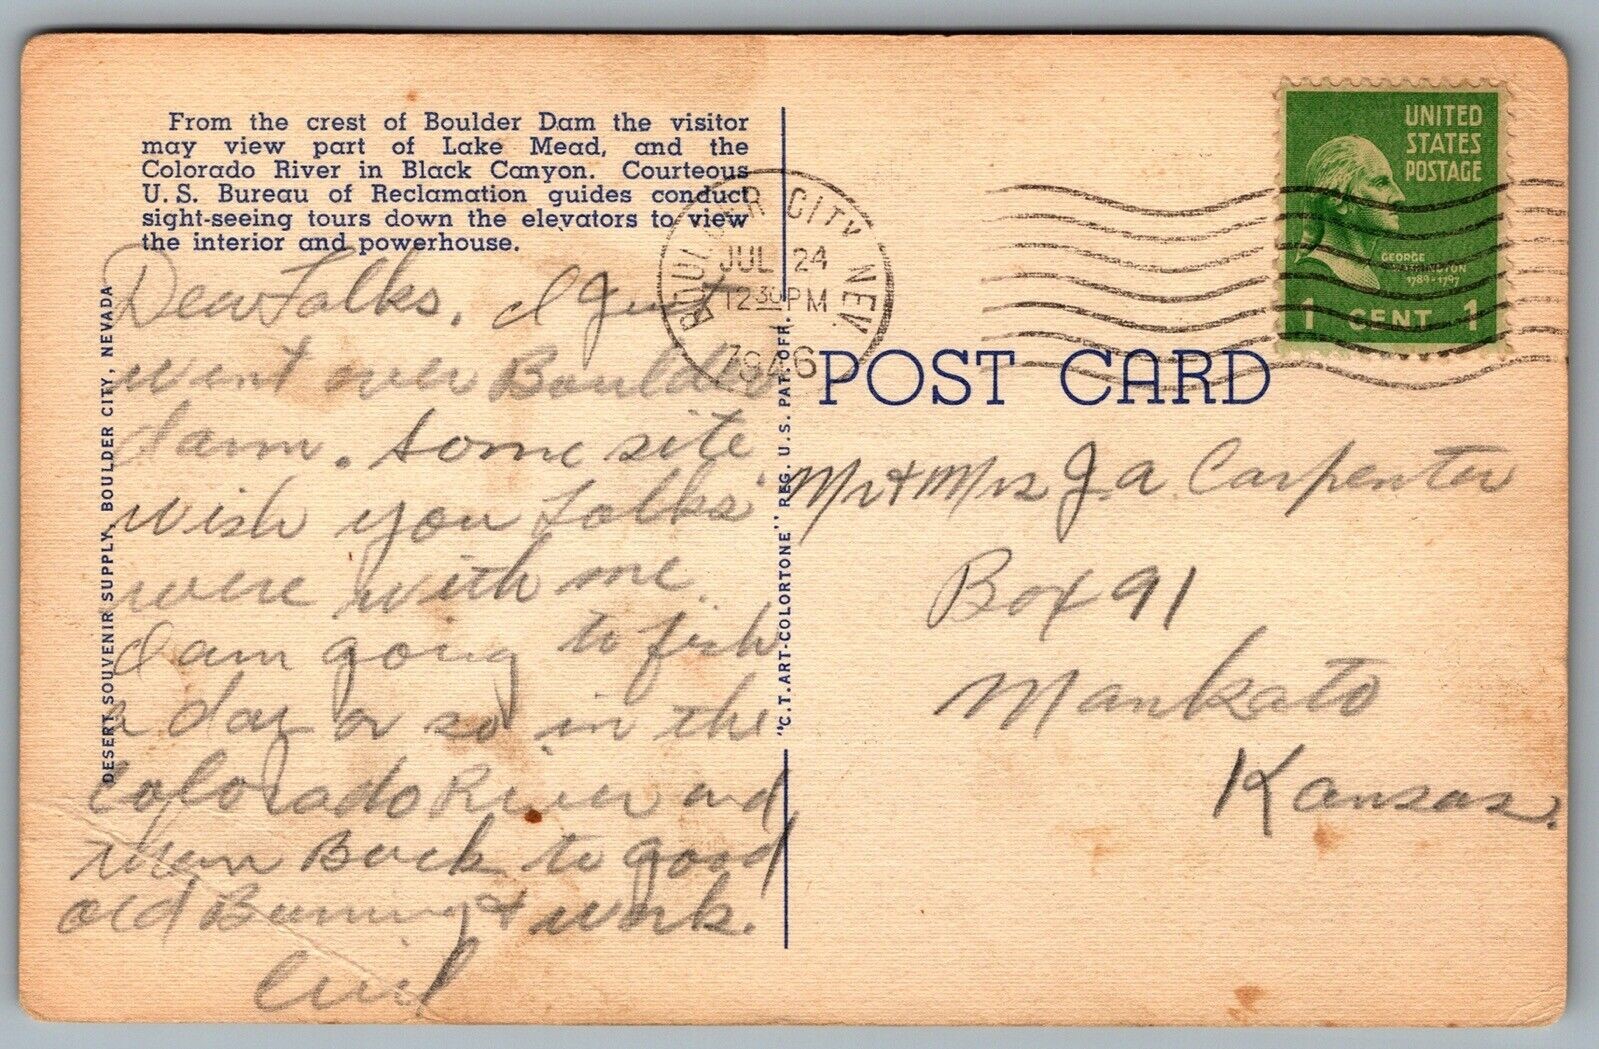 From the crest of Boulder Dam the visitor
may view part of Lake Mead, and the
Colorado River in Black Canyon. Courteous
U.S. Bureau of Reclamation guides conduct
sight-seeing tours down the elevators to view
the interior and powerhouse.
Dear Folks. I Just
went over Boulder
dam. Some site
wish you folks
were with me.
I am going to fish
a day or so in the
Colorado River and
then Back to good
old & work.
DESERT SOUVENIR SUPPLY, BOULDER CITY, NEVADA
"C.T. ART-COLORTONE" REG. U.S. PAT. OFF.
BOULDER CITY NEV.
JUL 24
12 30 PM
1946
UNITED
STATES
POSTAGE
GEORGE
WASHINGTON
1789-1797
1 CENT 1
POST CARD
Mr & Mrs J. A. Carpenter
Box 91
Mankato
Kansas.